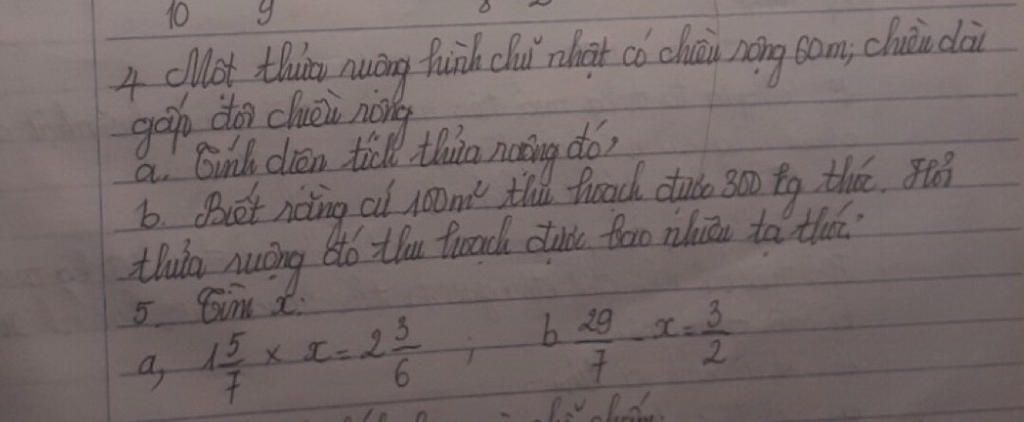 10 9
4 Một thửa ruộng hình chữ nhật có chiều rộng 60m; chiều dài
gấp đôi chiều rộng
a. Tính diện tích thửa ruộng đó?
b. Biết rằng cứ 100m² thu hoạch được 300 kg thóc. Hỏi
thửa ruộng đó thu hoạch được bao nhiêu tạ thóc?
5. Tìm x:
a, 1 5/7 × x = 2 3/6 ; b 29/7 - x = 3/2